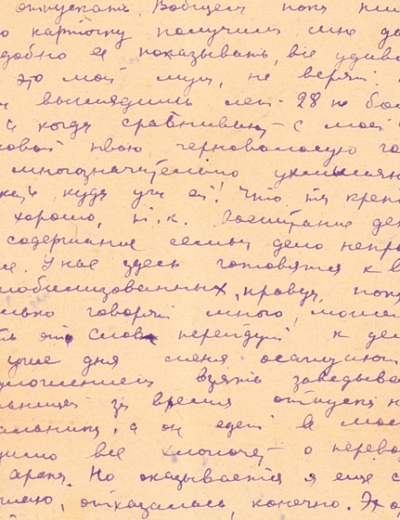 отпускать. Вобщем пока пи
ю карточку получила мне до
добно ее показывать, все удив
это мой муж, не верят.
выглядишь лет 28 не бол
а когда сравнивают с моей
ковой твою черноволосую го
многозначительно
куда уж ей! Что ты креп
хорошо, т.к. воспитание де
содержание семьи дело непро
ое. У нас здесь готовятся к в
мобилизованных, правда, пока
лько говорят много, может
ть эти слова перейдут к де
уже дня меня осаждают
дложением взять заведыва
льницей за время отпуска н
альника, а он едет в Мос
все хлопочет о перево
Но оказывается я еще с
отказалась, конечно. Это